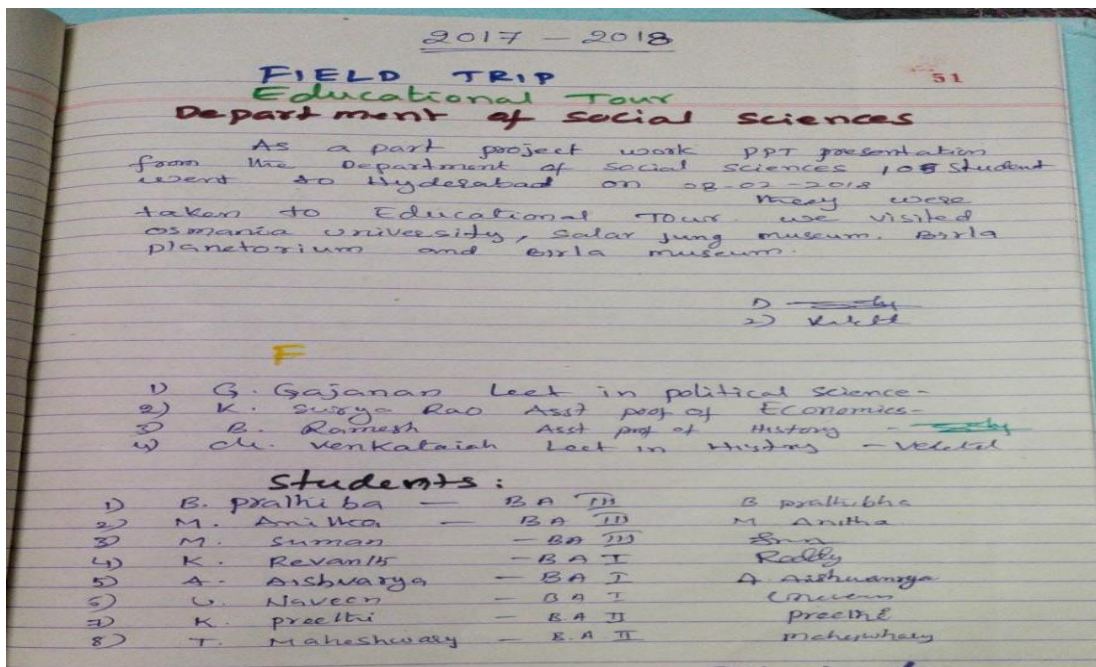 2017 - 2018
51
FIELD TRIP
Educational Tour
Department of social sciences
As a part project work PPT presentation
from the Department of social sciences, 105 student
went to Hyderabad on 08-02-2018
They were
taken to Educational Tour. we visited
osmania university, salar jung museum. Birla
planetorium and Birla museum.
1)
2)
F
1) G. Gajanan Lect in political science -
2) K. Surya Rao Asst prof of Economics -
3) B. Ramesh Asst prof of History -
4) ch. Venkataiah Lect in History -
Students :
1) B. prathiba - BA III B prathibha
2) M. Anitha - BA III M Anitha
3) M. Suman - BA III
4) K. Revanth - BA I Reddy
5) A. Aishvarya - BA I A Aishwarya
6) U. Naveen - BA I
7) K. preethi - B.A II preethi
8) T. Maheshwary - B.A II maheshwary